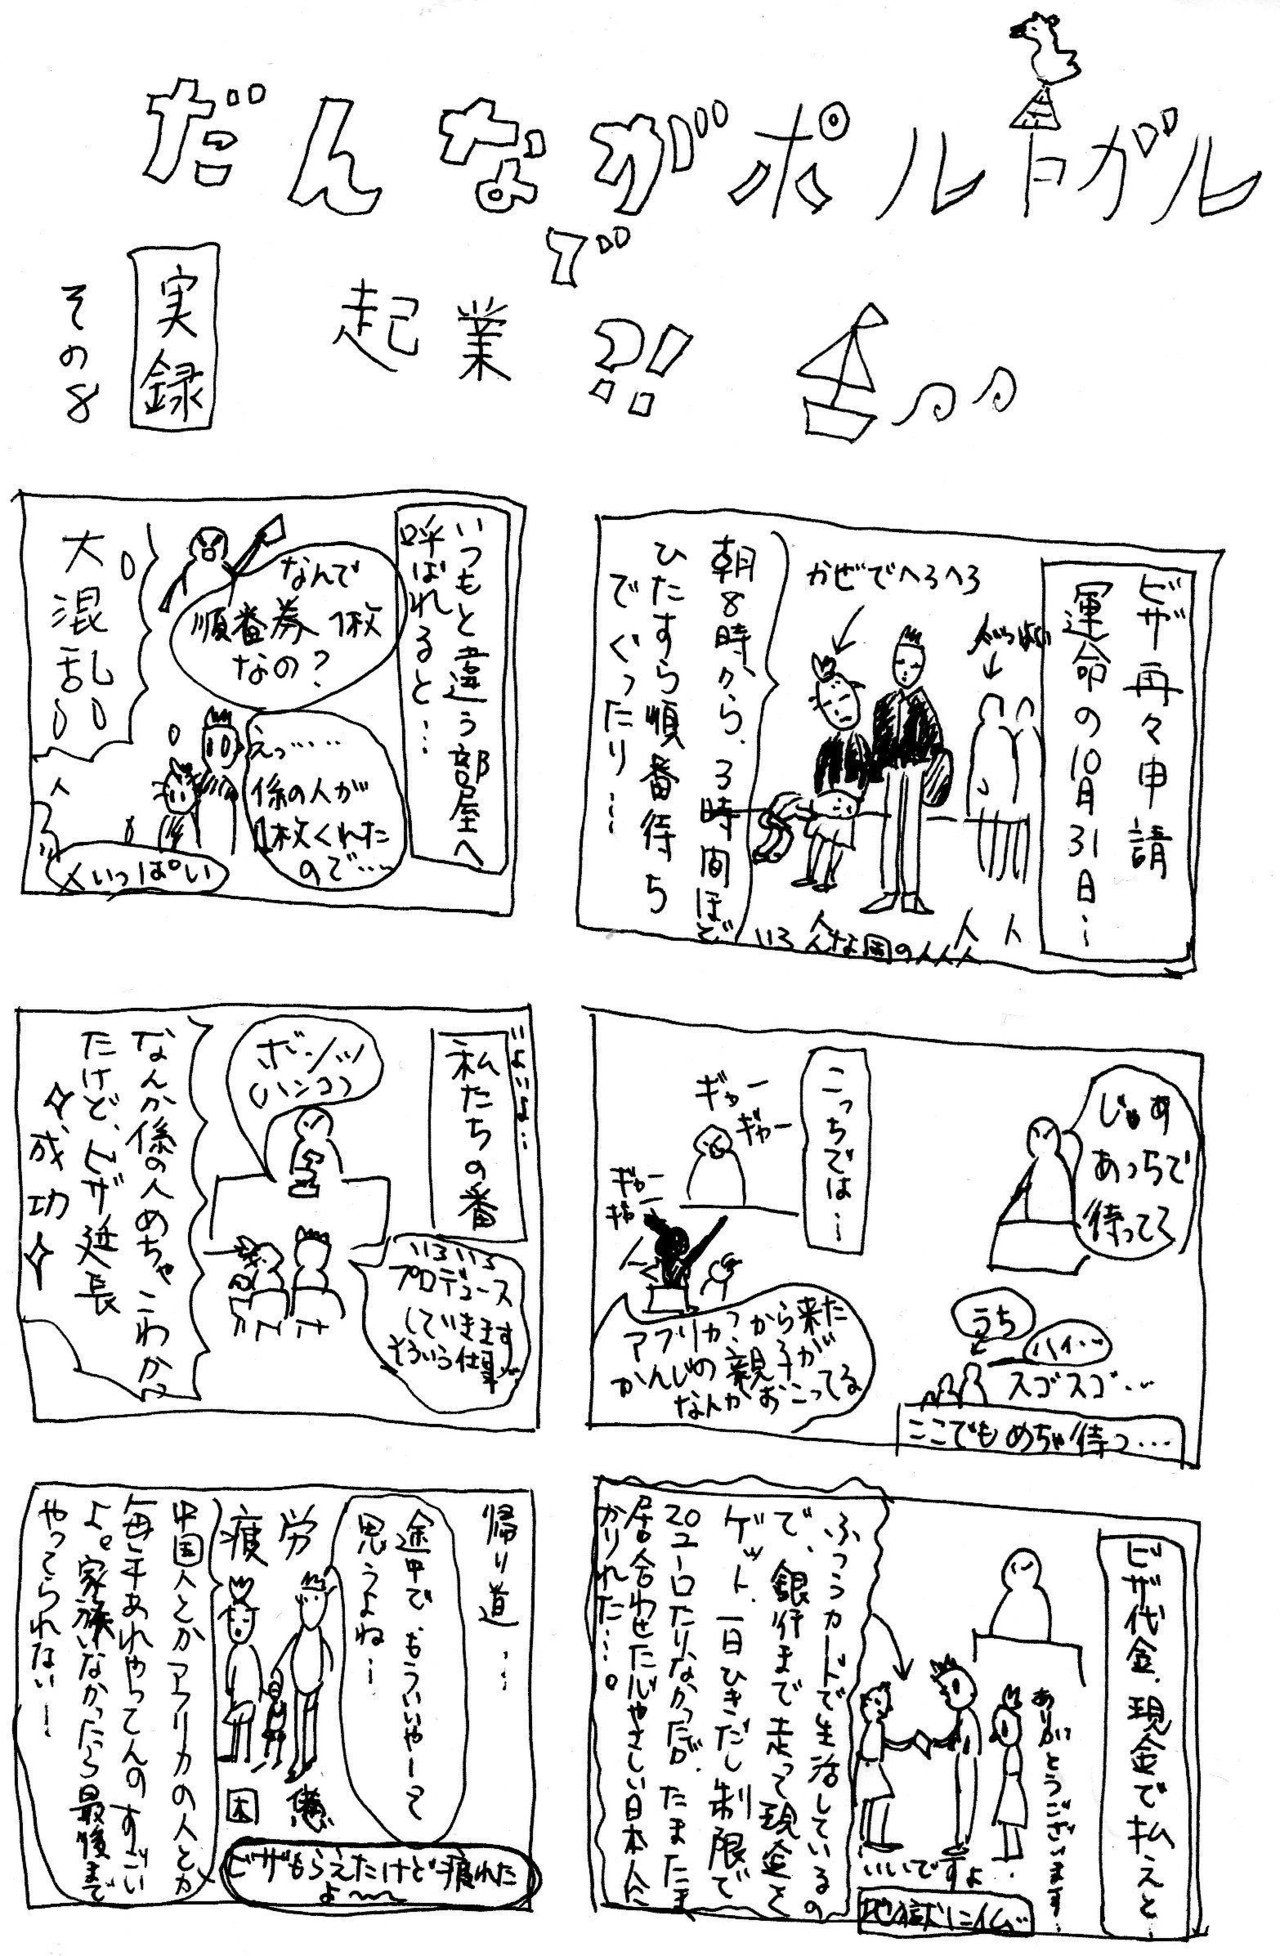 だんながポルトガル
で
起業⁈
実録
その8
ビザ再々申請
運命の10月31日…
人いっぱい
かぜでへろへろ
朝8時から、3時間ほど
ひたすら順番待ち
でぐったり…
いろんな国の人人人
人人
いつもと違う部屋へ
呼ばれると…
なんで
順番券1枚
なの?
えっ……
係の人が
1枚くれた
ので…
大混乱
人いっぱい
じゃあ
あっちで
待ってろ
うち
ハイ…
スゴスゴ…
ここでもめちゃ待つ…
こっちでは…
ギャー
ギャー
ギャー
ギャー
アフリカ?から来た
かんじの親子が
なんかおこってる
いよいよ…
私たちの番
ボンッ
(ハンコ)
いろいろ
プロデュース
していきます
そういう仕事
なんか係の人めちゃこわかっ
たけど、ビザ延長
成功
ビザ代金、現金で払えと…
ありがとうございます…
いいですよ
地獄に仏
ふつうカードで生活しているの
で、銀行まで走って現金を
ゲット、一日ひきだし制限で
20ユーロたりなかったが、たまたま
居合わせた心やさしい日本人に
かりれた…。
帰り道…
途中でもういいやーって
思うよね…
疲労
困憊
中国人とかアフリカの人とか
毎年あれやってんのすごい
よ。家族いなかったら最後まで
やってられない…
ビザもらえたけど疲れた
よ〜